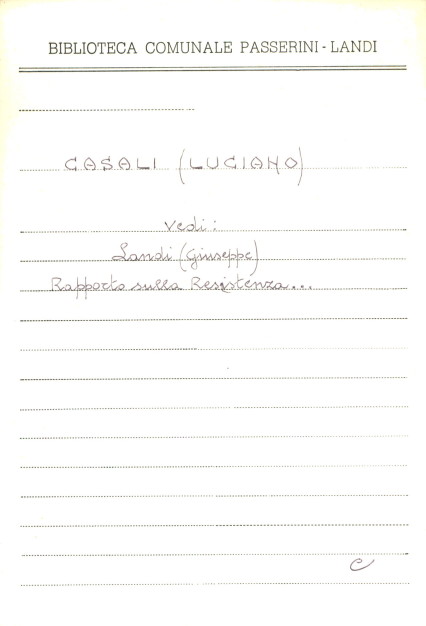 BIBLIOTECA COMUNALE PASSERINI-LANDI
CASALI (LUCIANO)
Vedi:
Landi (Giuseppe)
Rapporto sulla Resistenza...
C